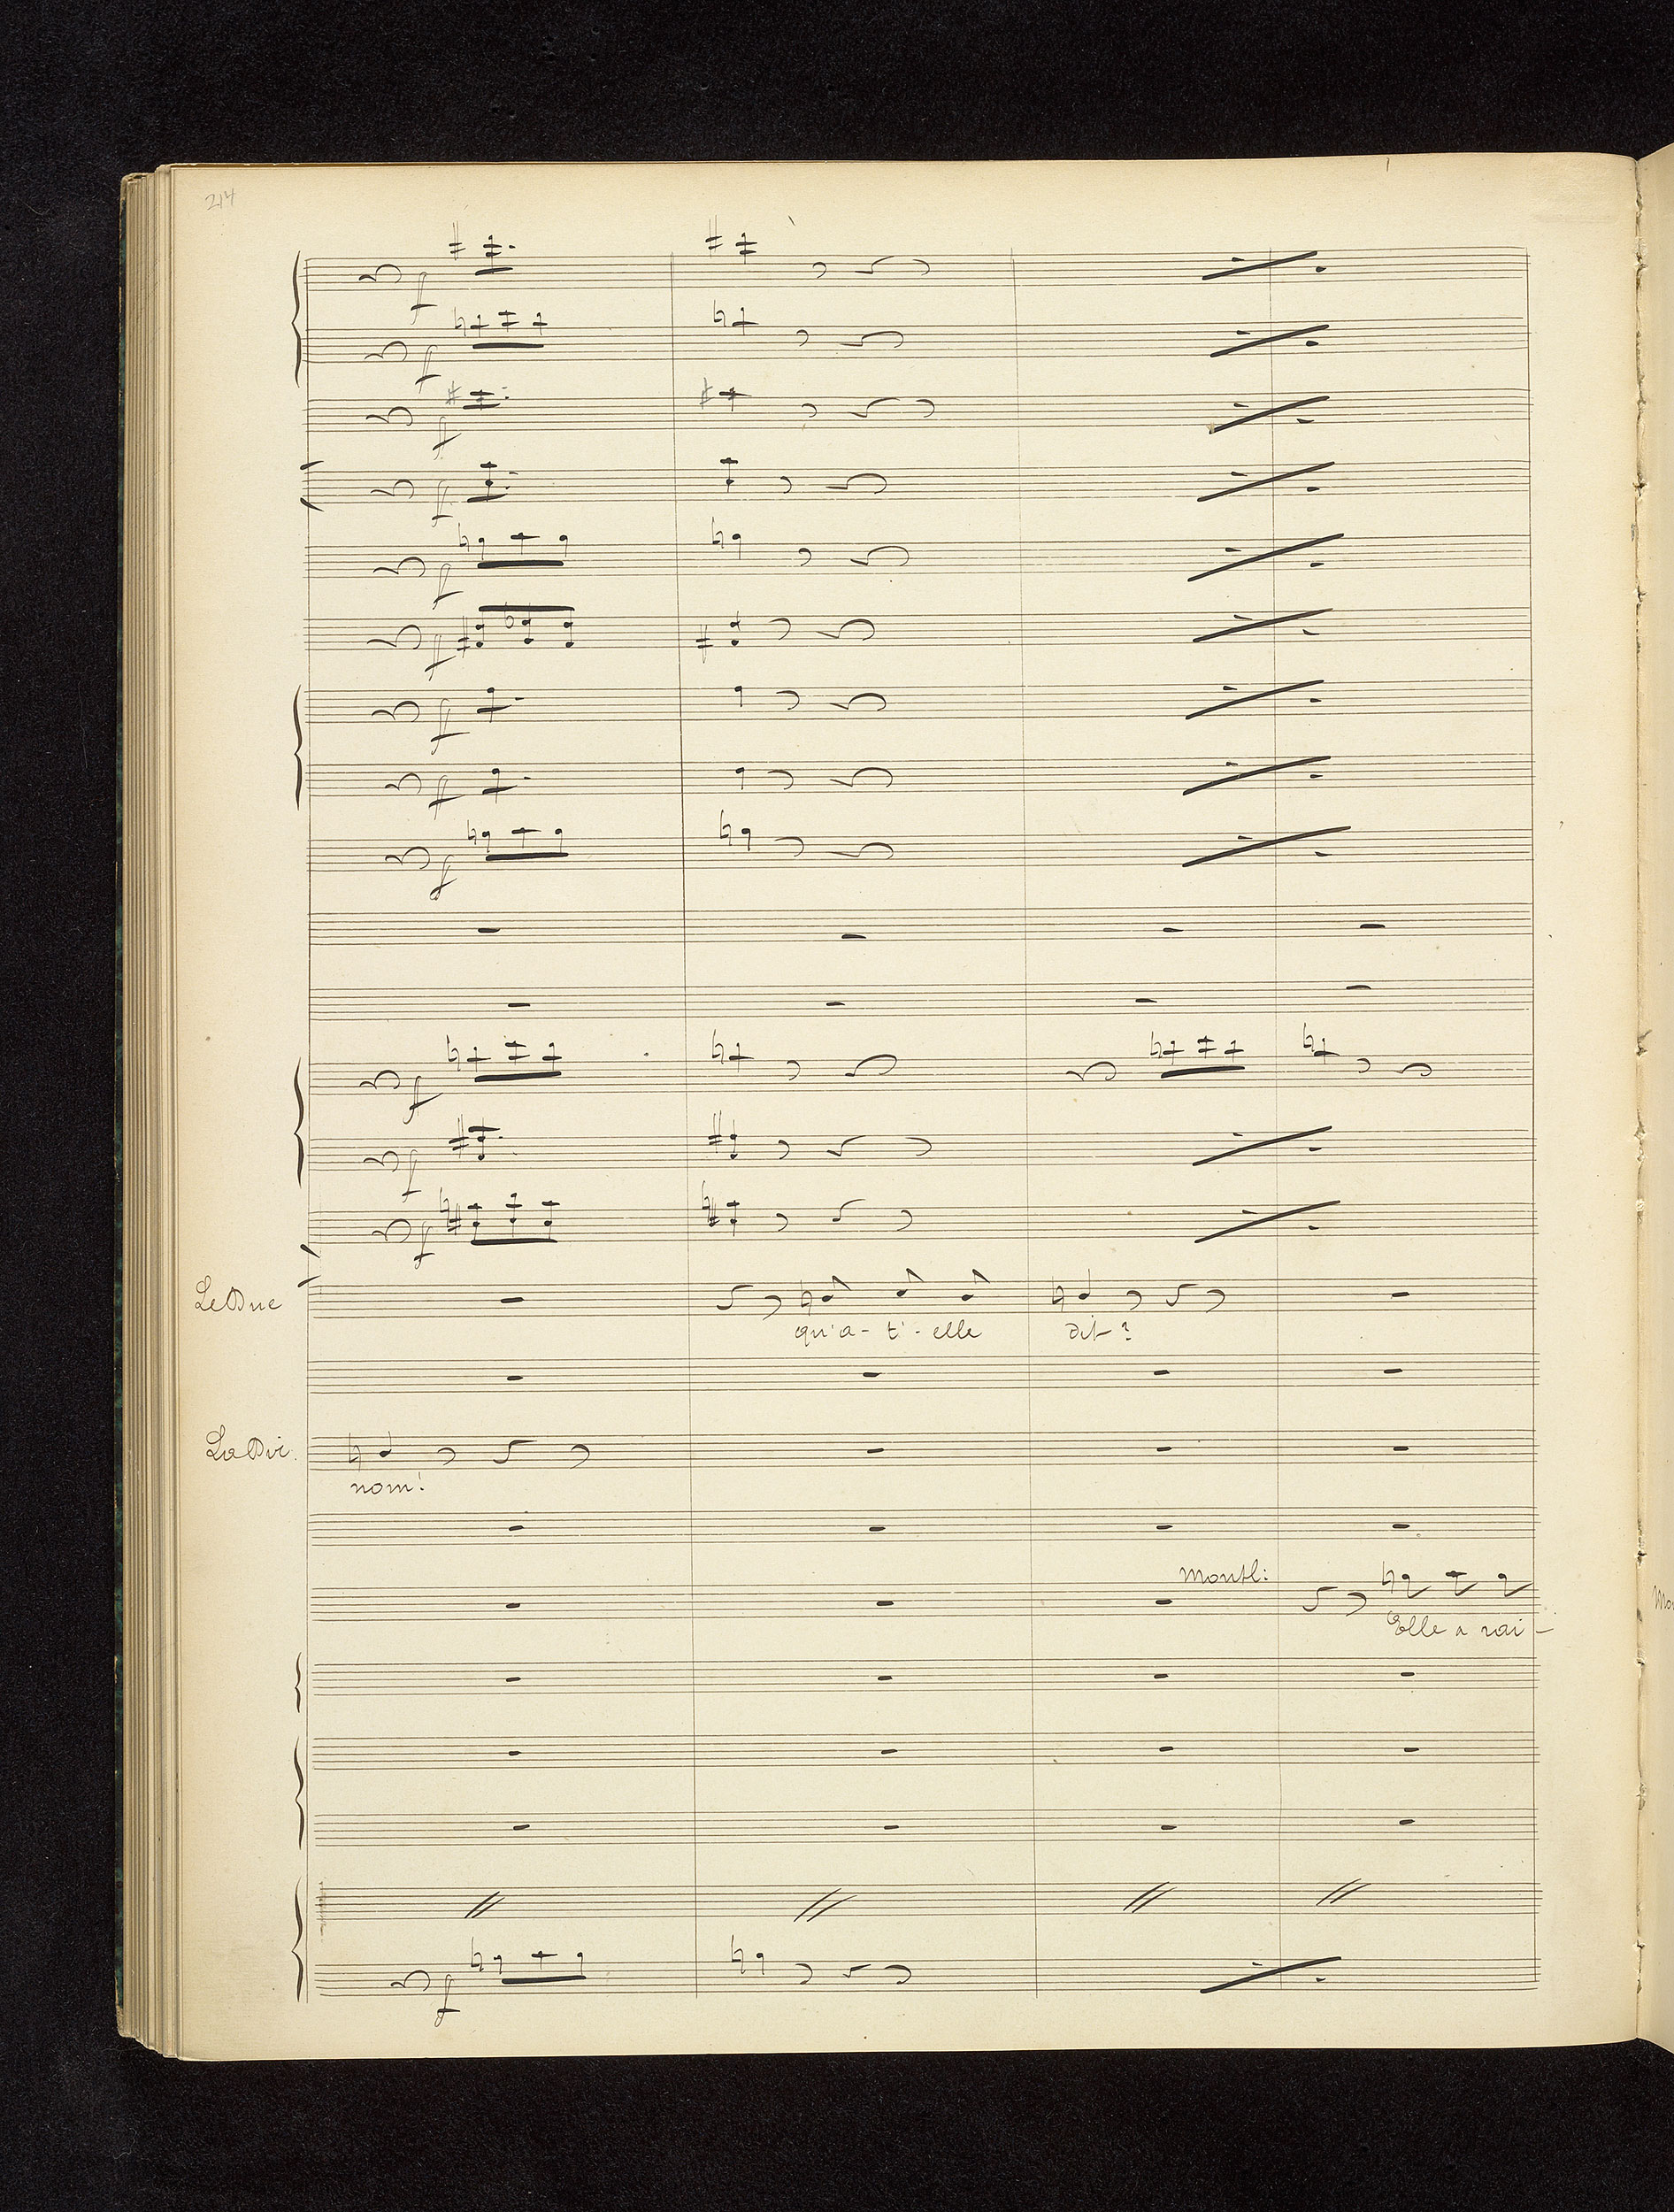 214
f
f
f
f
f
f
f
f
f
f
f
f
Le Duc
qu'a-t'-elle dit?
La Div.
nom!
Montl:
Elle a rai-
f